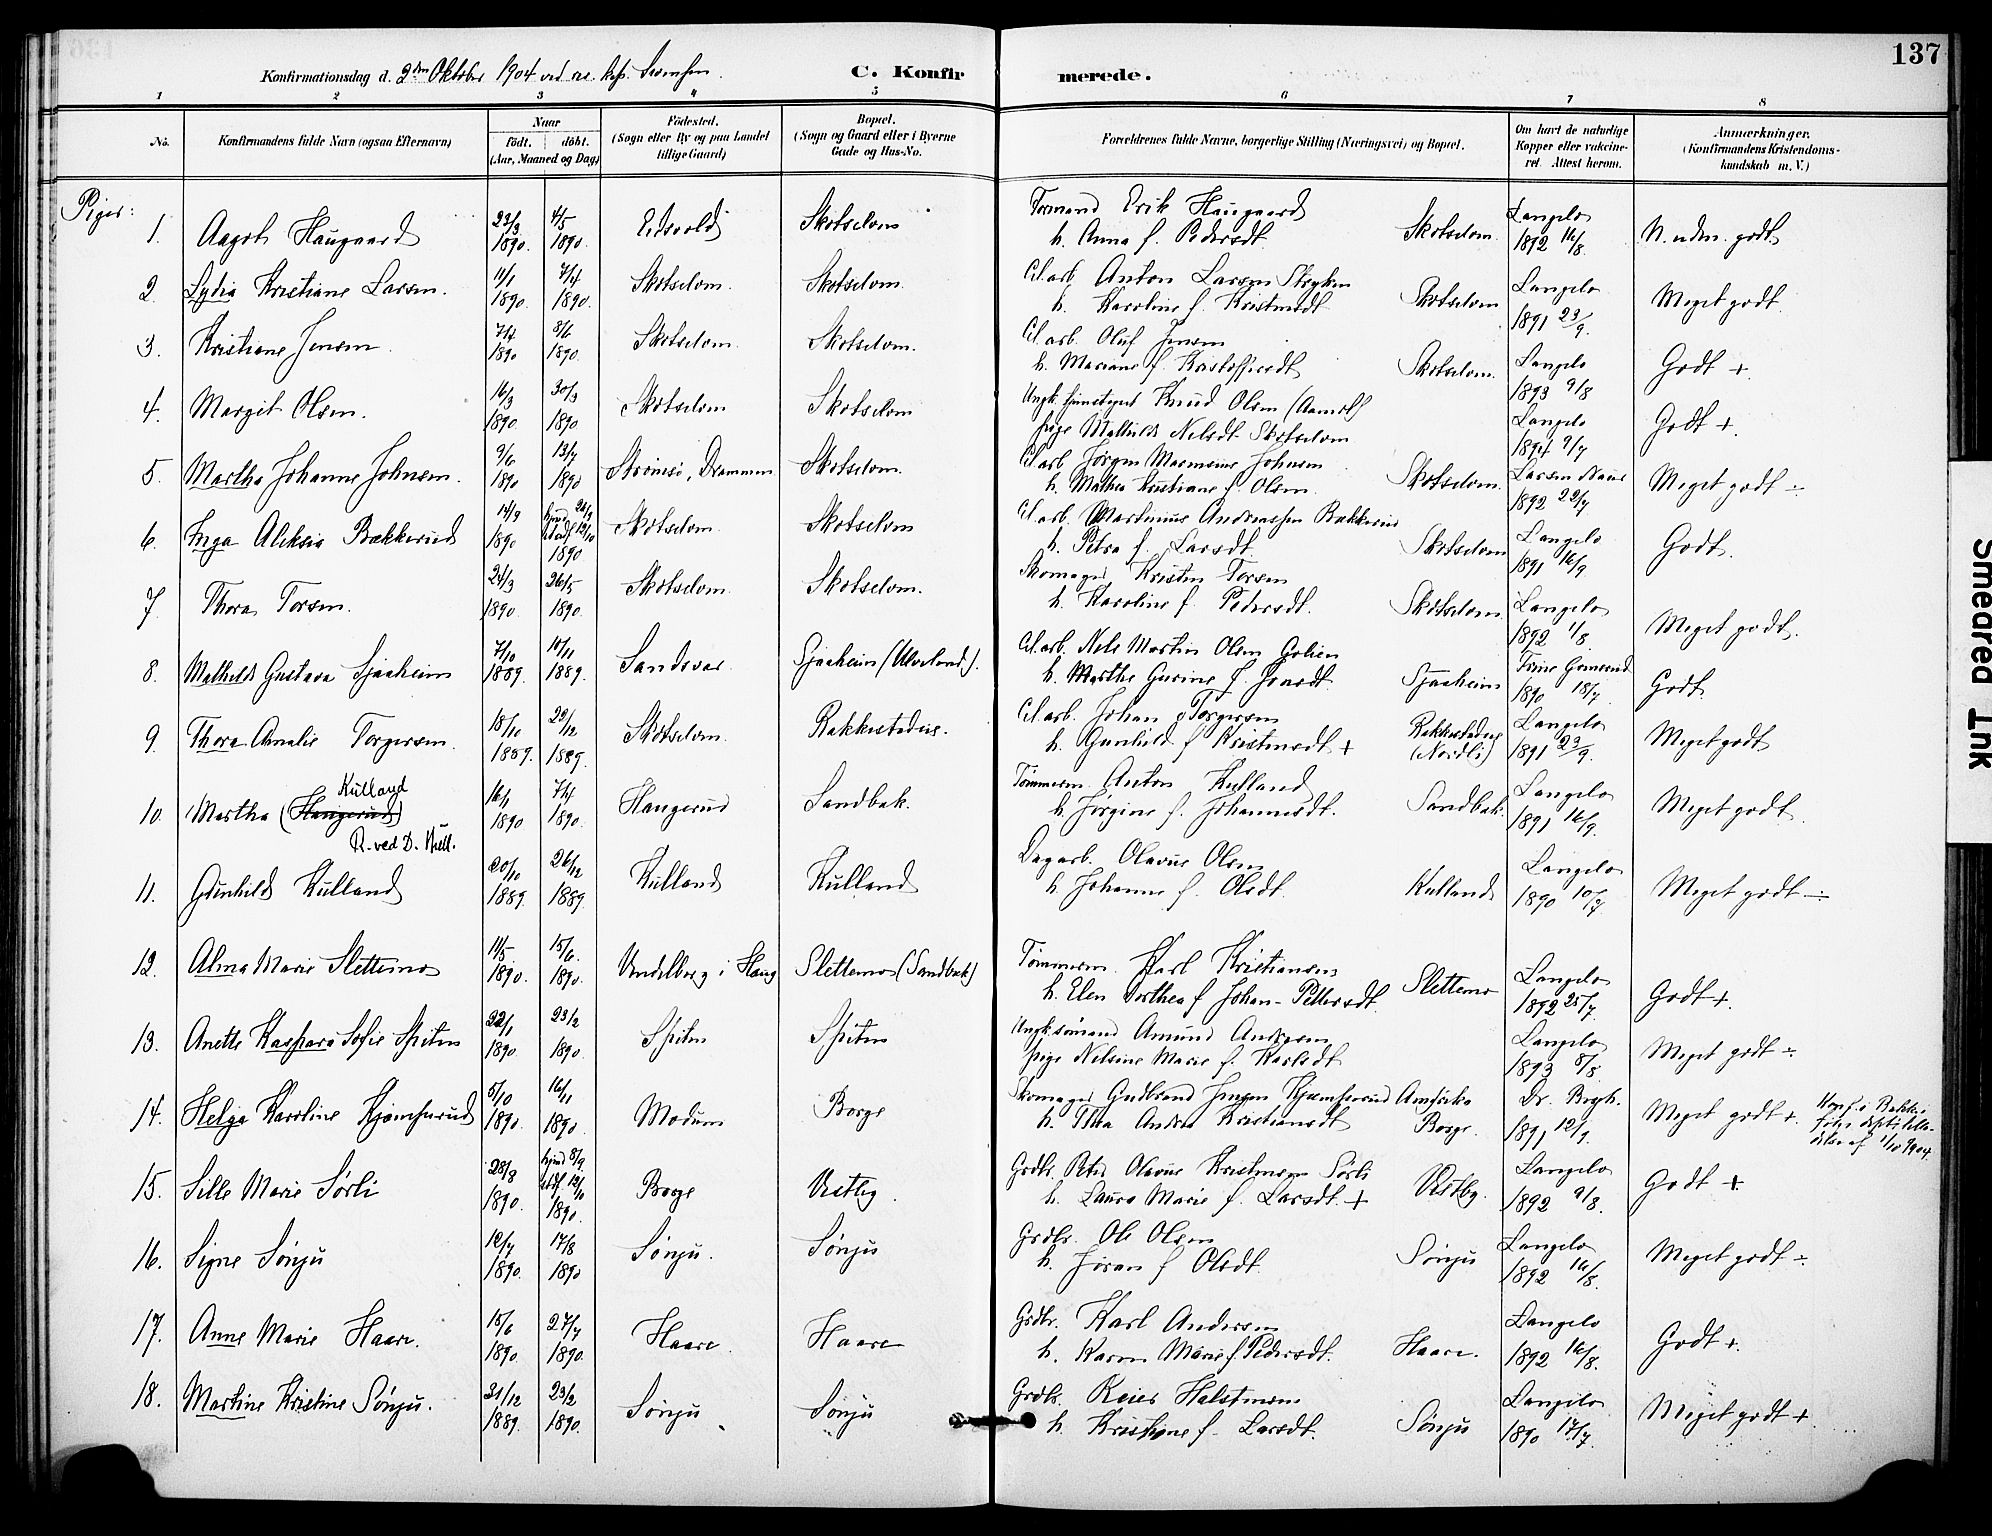 137
Konfirmationsdag d. 2den Oktober 1904 ved
C. Konfirmerede.
1 2 3 4 5 6 7 8
No. Konfirmandens fulde Navn (ogsaa Efternavn) Naar Födt. döbt. (Aar, Maaned og Dag) Födested. (Sogn eller By og paa Landet tillige Gaard) Bopæl. (Sogn og Gaard eller i Byerne Gade og Hus-No. Forældrenes fulde Navne, borgerlige Stilling (Næringsvei) og Bopæl. Om havt de naturlige Kopper eller vaccineret. Attest herom. Anmærkninger. (Konfirmandens Kristendomskundskab m. V.)
Piger:
1. Aagot Haugaard 23/3 1890. 4/5 1890. Eidsvold Skotselven Formand Erik Haugaard h. Anna f. Pedersdt. Skotselven. Langelo 1892 16/8. N. udm. godt
2. Lydia Kristiane Larsen. 11/1 1890. 7/4 1890. Skotselven. Skotselven. Cel.arb. Anton Larsen Stryken h. Karoline f. Kristensdt. Skotselven Langelo 1891 23/9. Meget godt.
3. Kristiane Jensen. 7/4 1890 8/6 1890. Skotselven. Skotselven. Cel.arb. Oluf Jensen h. Mariane f. Kristoffersdt. Skotselven. Langelo 1893 9/8 Godt +.
4. Margit Olsen. 16/3 1890. 30/3 1890 Skotselven Skotselven Ungk. Knud Olsen (Aamot) pige Mathilde Nilsdt. Skotselven Langelo 1894 9/7 Godt +.
5. Martha Johanne Johnsen. 9/6 1890 13/7 1890 Strömsö, Drammen Skotselven. Cel.arb. Jörgen Marensius Johnsen h. Mathea Kristiane f. Olsen. Skotselven. Larsen Næss 1892 22/7 Meget godt ÷
6. Inga Aleksia Bækkerud 14/9 1890 hjmd 21/9 stadf 19/10 1890 Skotselven. Skotselven Cel.arb. Martinius Andreassen Bækkerud h. Petra f. Larsdt. Skotselven Langelo 1891 16/9. Godt.
7. Thora Torsen. 24/3 1890. 26/5 1890. Skotselven. Skotselven. Skomager Kristen Torsen h. Karoline f. Pedersdt. Skotselven. Langelo 1892 1/8. Meget godt.
8. Mathilde Gustava Sjaaheim 7/10 1889. 10/11 1889. Sandsvær. Sjaaheim (Ulveland). Cel.arb. Nils Martin Olsen Golien h. Marthe Gurine f. Jonsdt. Sjaaheim Trine Gomerud 1890 18/7. Godt.
9. Thora Amalie Torgersen. 18/10 1889. 29/12 1889. Skotselven. Rakkestadeie. Cel.arb. Johan Torgersen h. Gunhild f. Kristensdt + Rakkestadeie (Nordli) Langelo 1891 23/9. Meget godt
10. Martha (Haugerud) Kulland R. ved D. Kull. 16/1 1890 7/4 1890. Haugerud Sandbæk. Tömmerm. Anton Kulland h. Jörgine f. Johannesdt. Sandbæk. Langelo 1891 16/9. Meget godt.
11. Gunhild Kulland 20/10 1889. 26/12 1889. Kulland Kulland Dagarb. Olavus Olsen h. Johanne f. Olsdt. Kulland Langelo 1890 10/7. Meget godt ÷
12. Alma Marie Slettemo 11/5 1890. 15/6. 1890. Vendelborg i Haug Slettemo (Sandbæk) Tömmerm. Karl Kristiansen h. Elen Dorthea f. Johan-Pettersdt. Slettemo Langelo 1892 25/7. Godt +.
13. Anette Kaspara Sofie Spiten 22/1 1890. 23/2 1890. Spiten Spiten Ungk.sömand Amund Andersen pige Nilsine Marie f. Karlsdt Langelo 1893 8/8. Meget godt ÷
14. Helga Karoline Kjemperud 5/10 1890. 16/11 1890. Modum Borge Skomager Gudbrand Jensen Kjemperud Amerika h. Thea Andrea Kristiansdt Borge. Dr. Bugh. 1891 12/9. Meget godt +. Konf. i Bakke ifölge af 1/10 1904.
15. Sille Marie Sörli 28/8 1890. hjmd 8/9. stadf. 12/10 1890. Borge Vestby. Grdbr. Peter Olavus Kristensen Sörli h. Laura Marie f. Larsdt. + Vestby. Langelo 1892 9/8. Godt +.
16. Signe Sönju 12/7 1890. 17/8 1890 Sönju. Sönju Grdbr. Ole Olsen h. Jöran f. Olsdt. Sönju Langelo 1892 16/8. Meget godt ÷
17. Anne Marie Haare. 15/6 1890. 27/7 1890. Haare. Haare Grdbr. Karl Andersen h. Karen Marie f. Pedersdt. Haare. Langelo 1892 16/8. Godt +.
18. Martine Kristine Sönju. 31/12 1889. 23/2 1890. Sönju Sönju Grdbr. Reier Halstensen h. Kristiane f. Larsdt. Sönju Langelo 1890 17/7. Meget godt +.
Smeared Ink